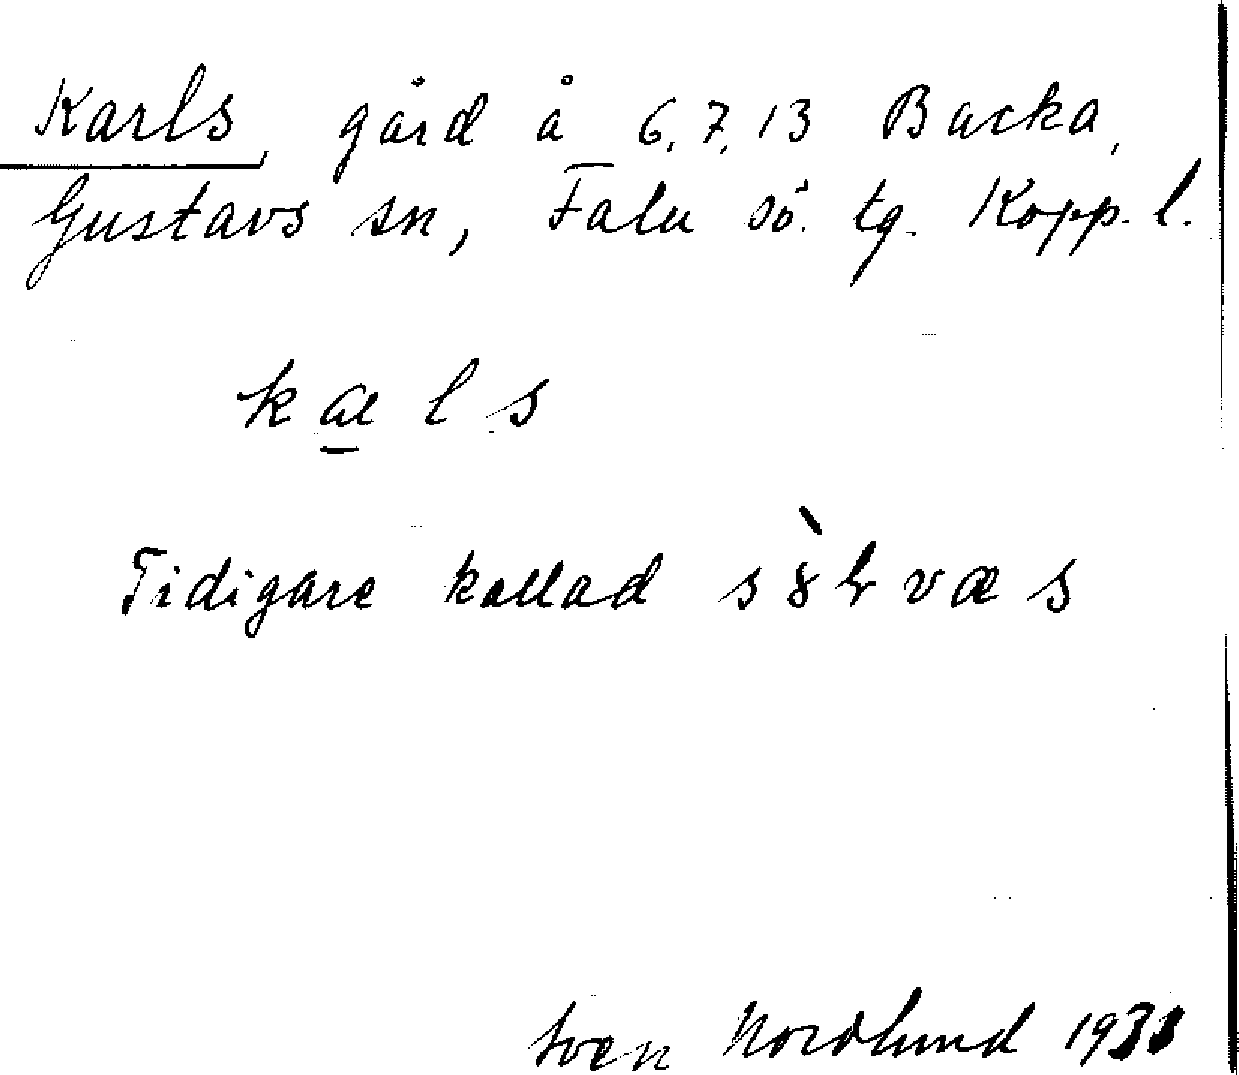 Karls, gård å 6, 7, 13 Backa,
Gustavs sn, Falu sö. tg. Kopp. l.
kæls
Tidigare kallad
Sven Nordlund